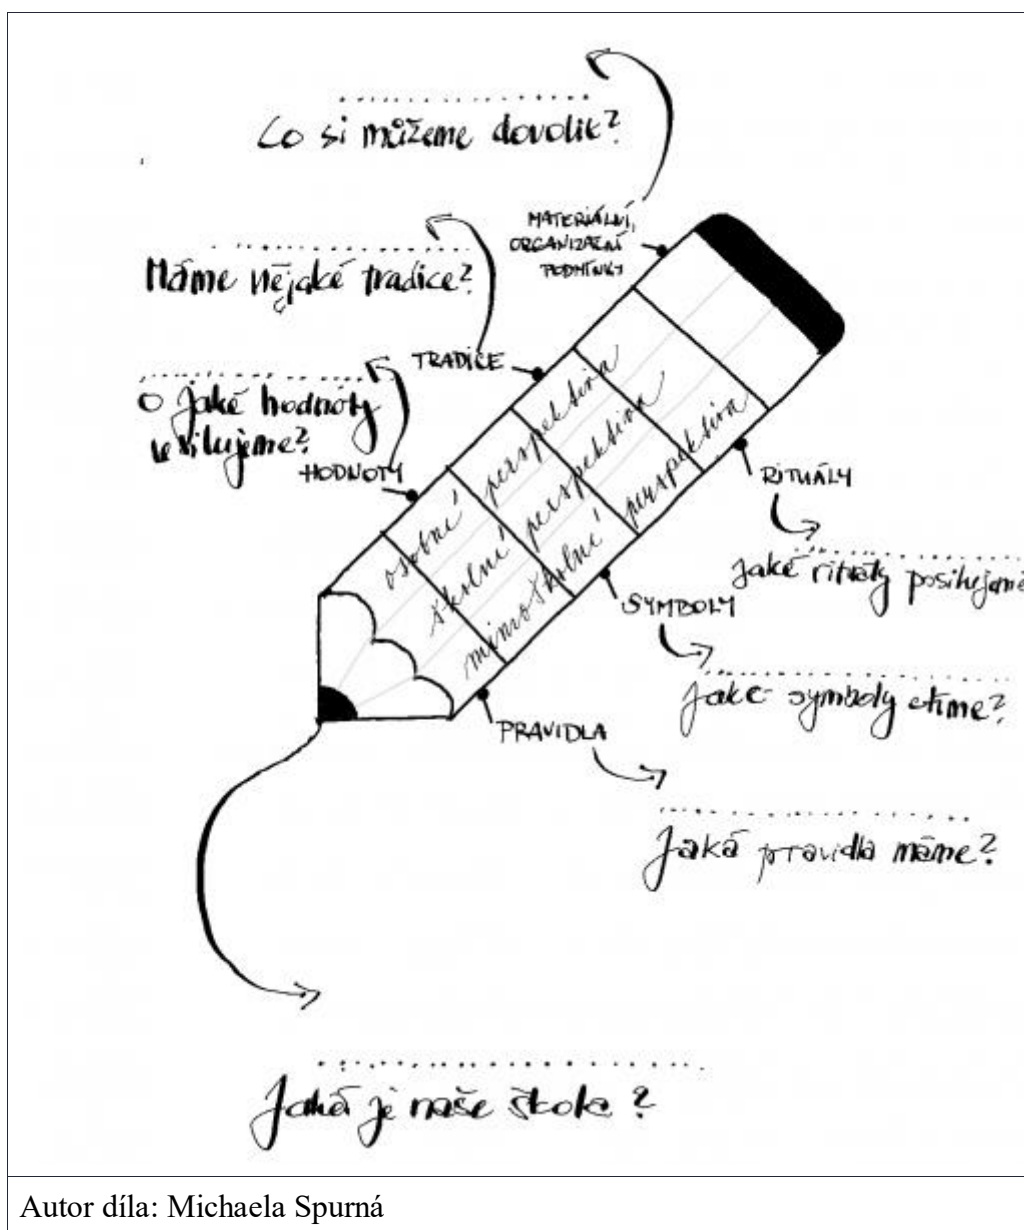 Co si můžeme dovolit?
MATERIÁLNÍ,
ORGANIZAČNÍ
PODMÍNKY
Máme nějaké tradice?
TRADICE
o jaké hodnoty
usilujeme?
HODNOTY
osobní perspektiva
školní perspektiva
mimoškolní perspektiva
RITUÁLY
Jaké rituály posilujeme
SYMBOLY
Jaké symboly ctíme?
PRAVIDLA
Jaká pravidla máme?
Jaká je naše škola?
Autor díla: Michaela Spurná